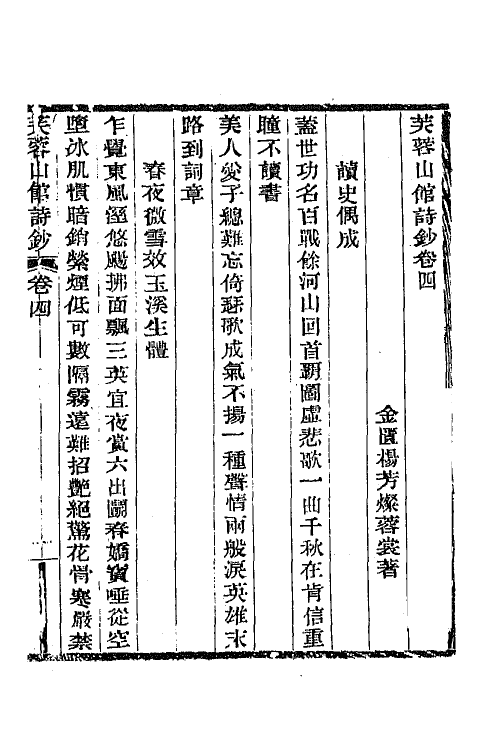 芙蓉山館詩鈔卷四
金匱楊芳燦蓉裳著
讀史偶成
蓋世功名百戰餘河山回首霸圖虛悲歌一曲千秋在肯信重
瞳不讀書
美人愛子總難忘倚瑟歌成氣不揚一種聲情兩般淚英雄末
路到詞章
春夜微雪效玉溪生體
乍覺東風溼悠颺拂面飄三英宜夜賞六出鬭春嬌寶唾從空
墮冰肌慣暗銷縈煙低可數隔霧遠難招艷絕驚花骨寒嚴禁
芙蓉山館詩鈔
卷四
一